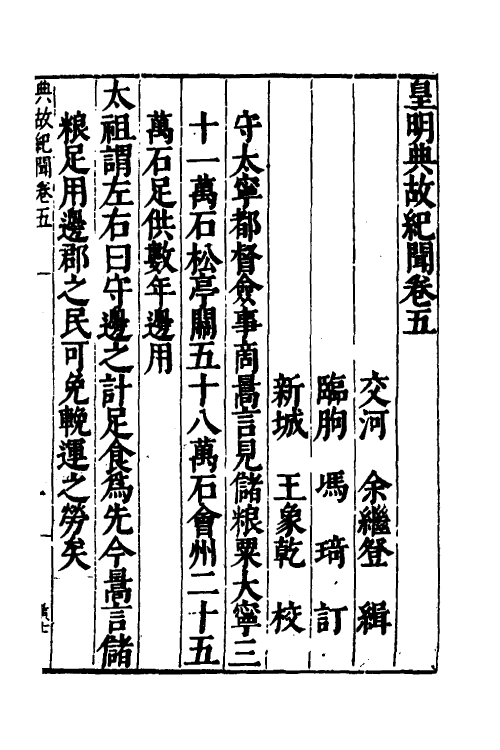 皇明典故紀聞卷五
交河 余繼登 緝
臨朐 馮琦 訂
新城 王象乾 校
守大寧都督僉事商暠言見儲粮粟大寧三
十一萬石松亭關五十八萬石會州二十五
萬石足供數年邊用
太祖謂左右曰守邊之計足食爲先今暠言儲
粮足用邊郡之民可免輓運之勞矣
典故紀聞卷五 一